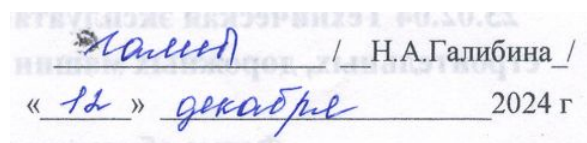 Галиб / Н.А.Галибина /
« 12 » декабря 2024 г